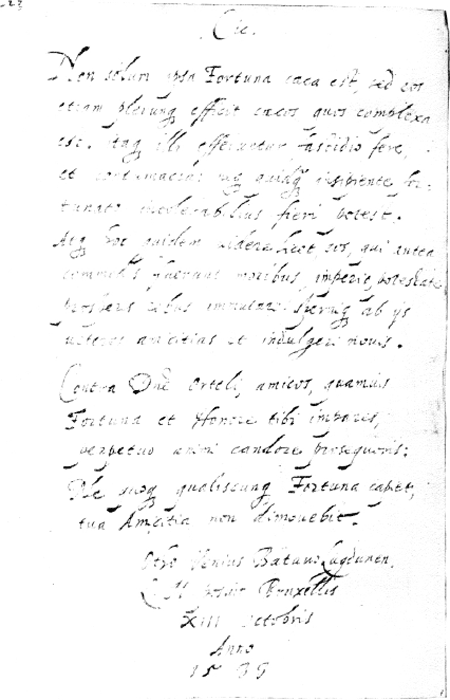 Cic.
Non solum ipsa Fortuna caeca est, sed eos
etiam plerunq efficit caecos quos complexa
est. Itaq illi efferuntur fastidio fere,
et contumacia: neq quidq insipiente for-
tunato intolerabilius fieri potest.
Atq hoc quidem videre licet, eos, qui antea
commodis fuerunt moribus, imperio, potestate
prosperis rebus immutari: sperniq ab ijs
veteres amicitias et indulgeri novis.
Contra Orteli, amicos, quamvis
Fortuna et Honore tibi impares,
perpetuo animi candore prosequeris:
suoq qualiscunq Fortuna capet,
tua Amicitia non dimovebit.
Otho Venius Batavus Lugdunen.
posuit Bruxellis
XIII octobris
Anno
15